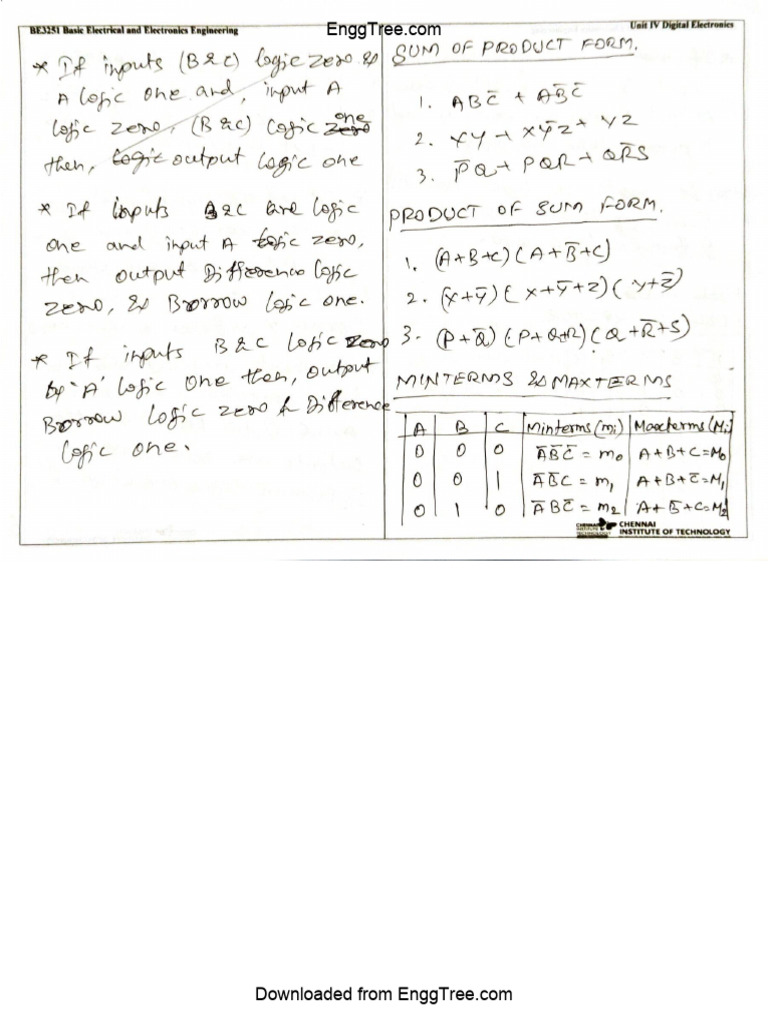 EnggTree.com
BE3251 Basic Electrical and Electronics Engineering
Unit IV Digital Electronics
* If inputs (B & C) logic zero &
A logic one and, input A
logic zero, (B & C) logic one
then, output logic one
* If inputs B & C are logic
one and input A logic zero,
then output Difference logic
zero, & Borrow logic one.
* If inputs B & C logic zero
by 'A' logic one then, output
Borrow logic zero & Difference
logic one.
SUM OF PRODUCT FORM.
1. ABC̅ + AB̅C̅
2. XY + XY̅Z + YZ
3. P̅Q + PQR + QR̅S
PRODUCT OF SUM FORM.
1. (A+B+C) (A+B̅+C)
2. (X+Y̅) (X+Y̅+Z) (Y+Z̅)
3. (P+Q̅) (P+Q+R) (Q+R̅+S)
MINTERMS & MAXTERMS
A B C Minterms (mi) Maxterms (Mi)
0 0 0 A̅B̅C̅ = m0 A+B+C=M0
0 0 1 A̅B̅C = m1 A+B+C̅=M1
0 1 0 A̅BC̅ = m2 A+B̅+C=M2
CHENNAI
INSTITUTE OF TECHNOLOGY
Downloaded from EnggTree.com